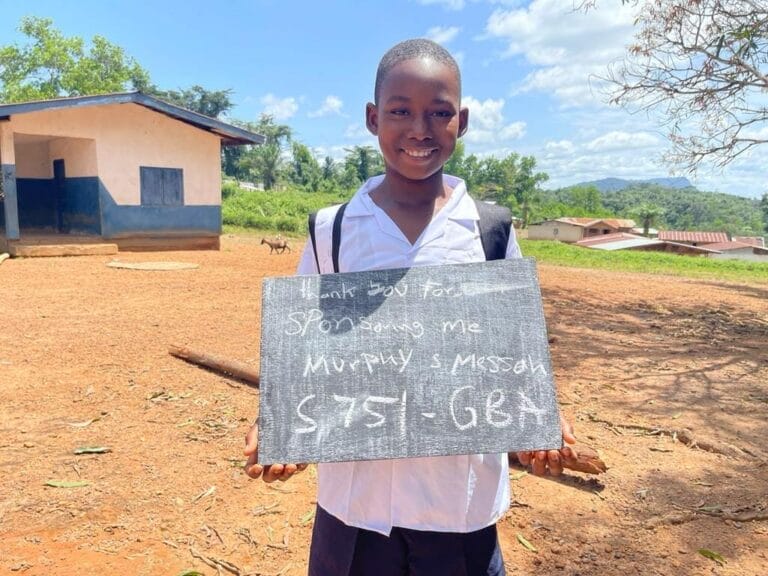 Thank you for
Sponsoring me
Murphy s Messah
S 751-GBA